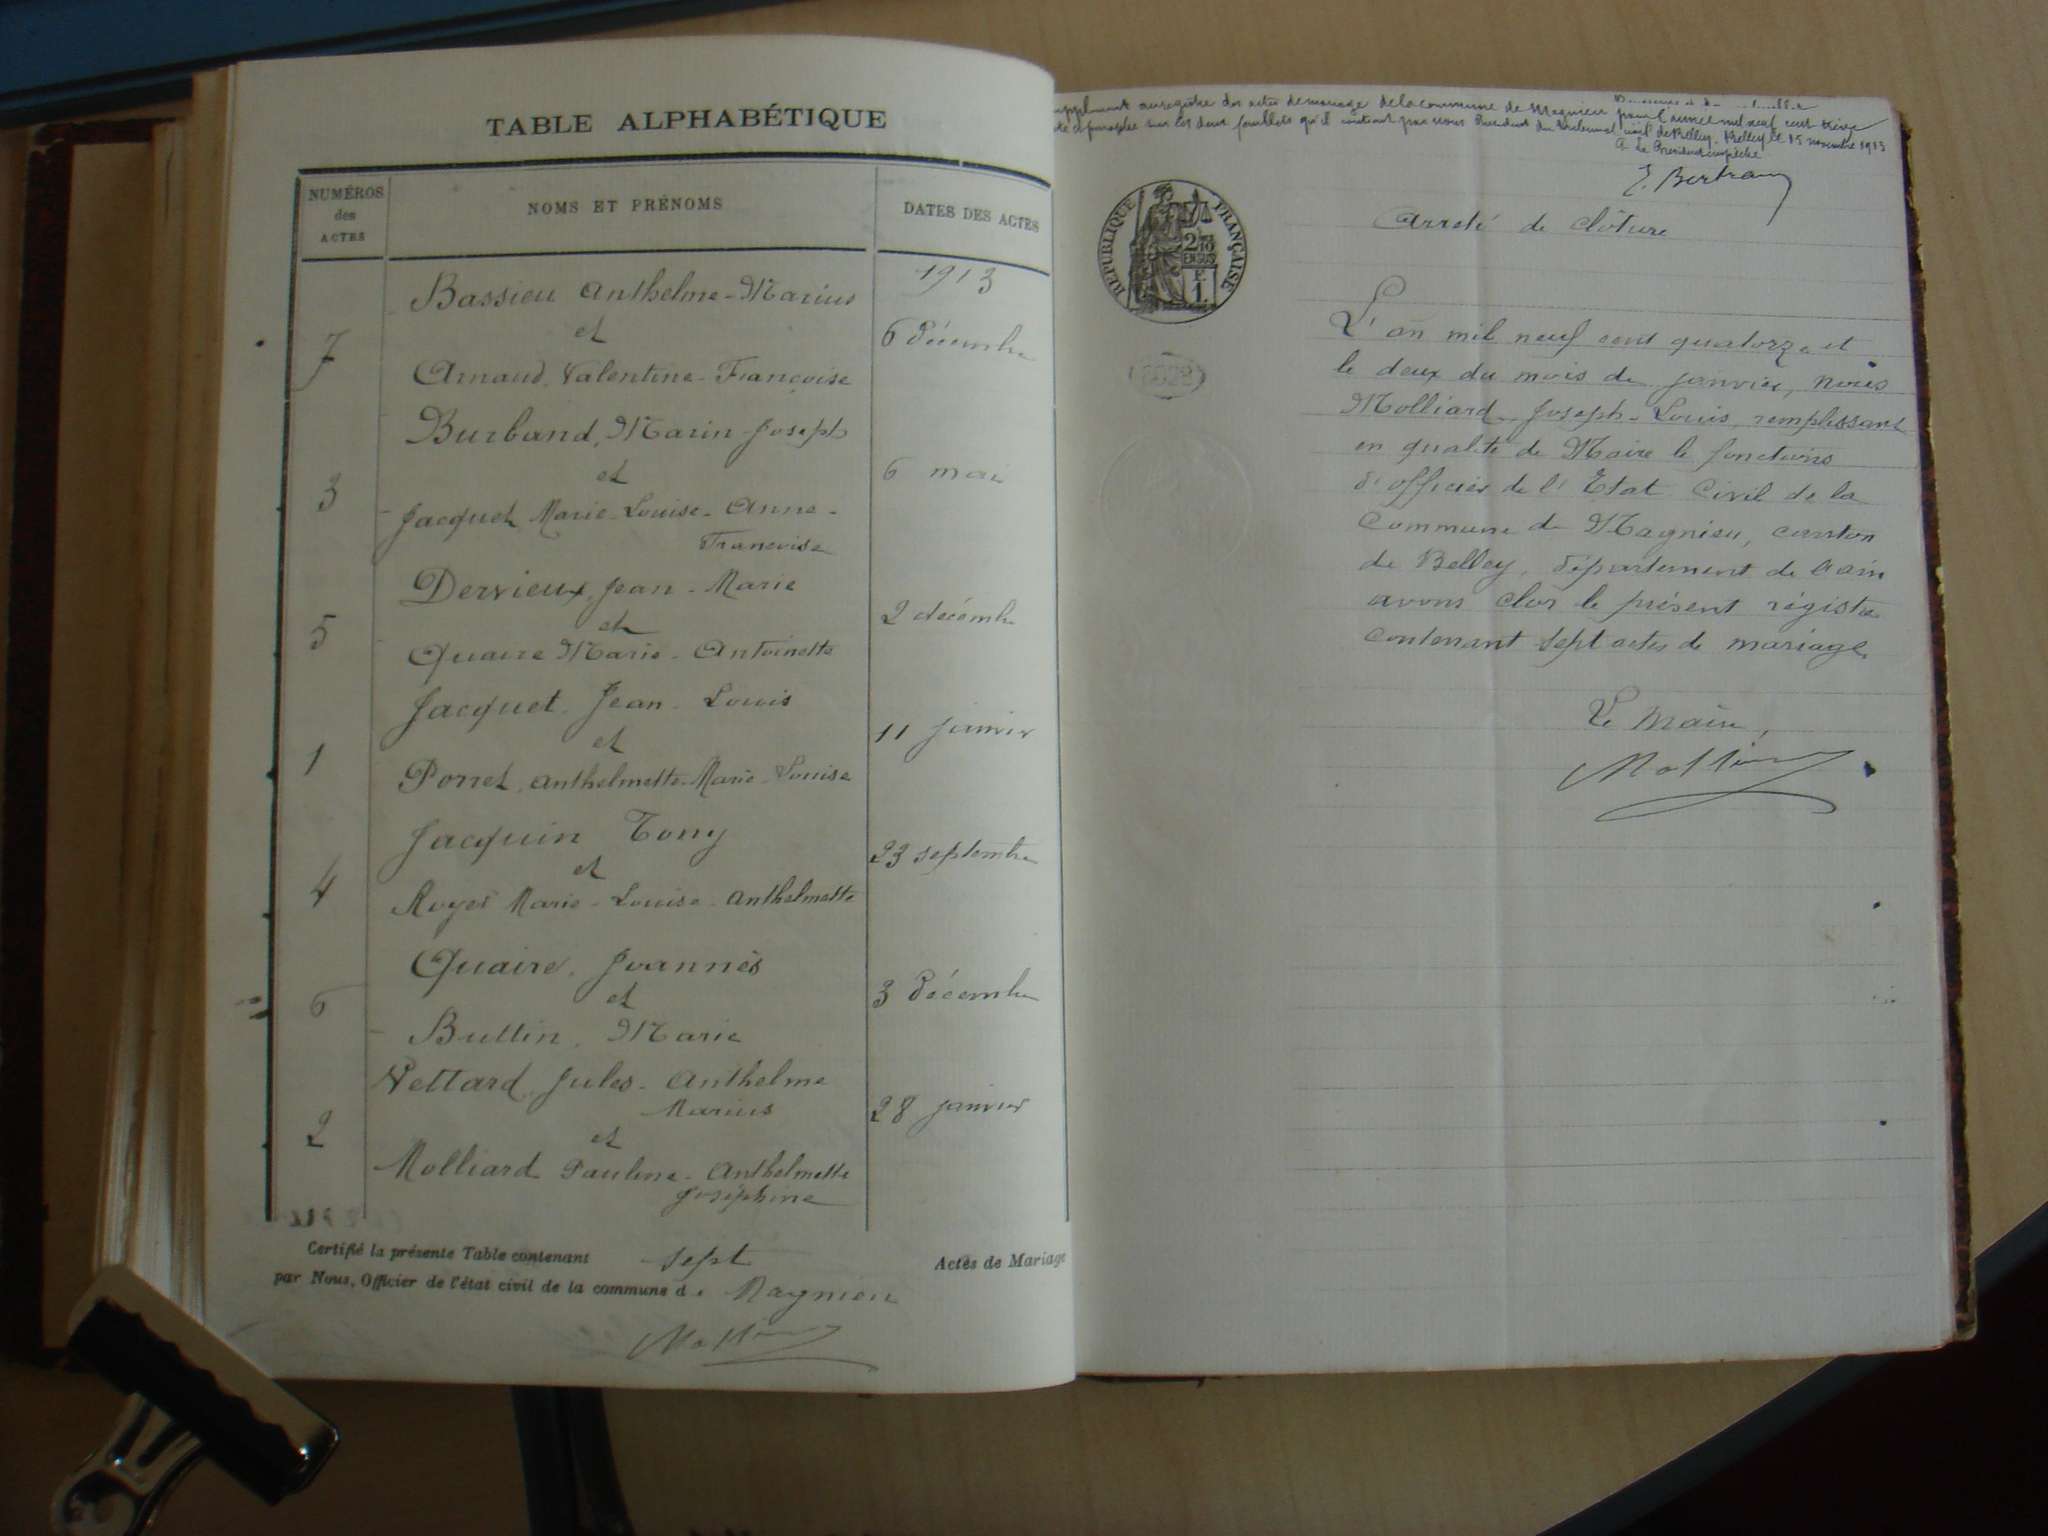 TABLE ALPHABÉTIQUE
NUMÉROS
des
ACTES
NOMS ET PRÉNOMS
DATES DES ACTES
1913
Bassieu Anthelme-Marius
et
7
6 Décembre
Arnaud, Valentine-Françoise
Burband, Marin-Joseph
et
3
6 mai
Jacquet Marie-Louise-Anne-
Françoise
Dervieux, Jean-Marie
et
5
2 décembre
Quaire Marie-Antoinette
Jacquet Jean-Louis
et
1
11 janvier
Porret, Anthelmette-Marie-Louise
Jacquin Tony
et
4
23 septembre
Royer Marie-Louise-Anthelmette
Quaire, Joannès
et
6
3 Décembre
Buttin, Marie
Vettard, Jules-Anthelme
Marius
et
2
28 janvier
Molliard Pauline-Anthelmette
Joséphine
Certifié la présente Table contenant sept Actes de Mariage
par Nous, Officier de l'état civil de la commune de Magnieu
supplément au registre des actes de mariage de la commune de Magnieu pour l'année mil neuf cent treize
sur les deux feuillets qu'il contient par nous Président du Tribunal civil de Belley. Belley le 15 novembre 1913
Le Président empêché
E. Bertran
REPUBLIQUE FRANÇAISE
2/10
EN SUS
F
1
Arreté de clôture
L'an mil neuf cent quatorze et
le deux du mois de janvier, nous
Molliard Joseph-Louis, remplissant
en qualité de Maire le fonctions
d'officier de l'Etat Civil de la
Commune de Magnieu, canton
de Belley, département de l'ain
avons clos le présent régistre
contenant sept actes de mariage.
Le Maire,